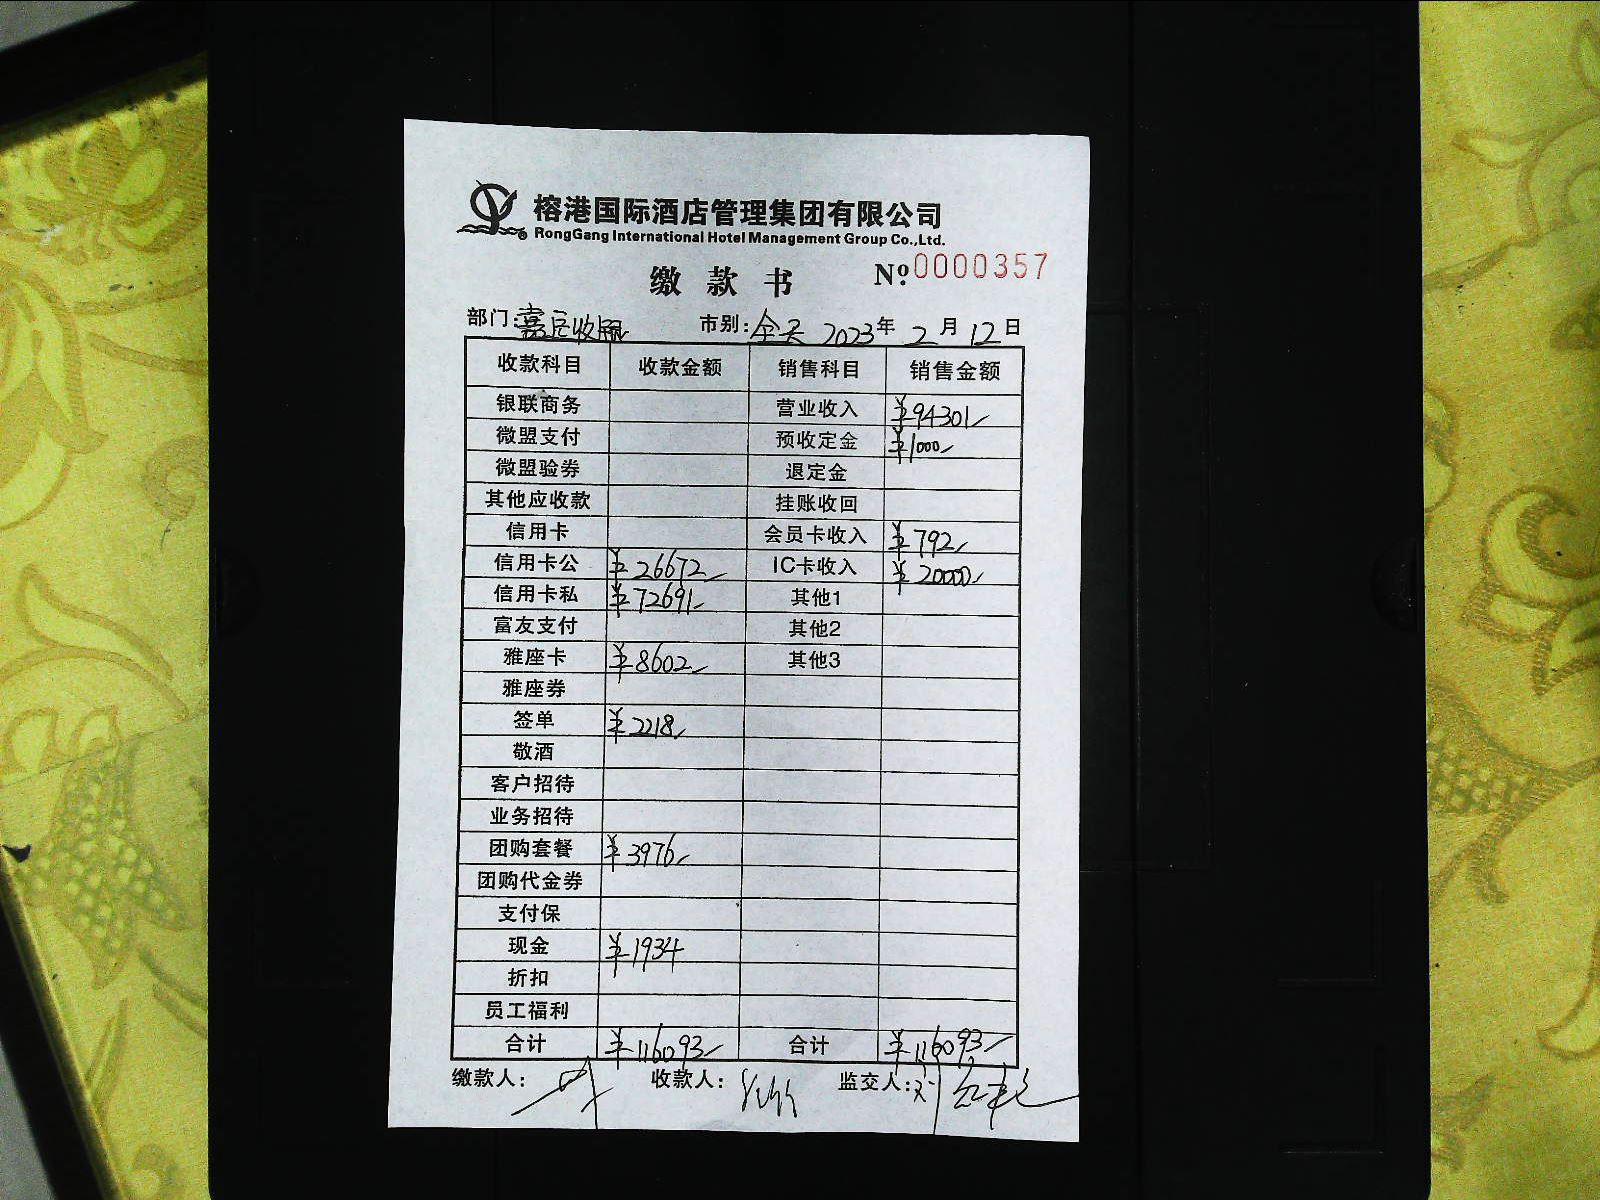 榕港国际酒店管理集团有限公司
RongGang International Hotel Management Group Co.,Ltd.
缴款书 Nº 0000357
部门: 市别:全天 2023年 2月 12日
收款科目 收款金额 销售科目 销售金额
银联商务 营业收入 ¥94301
微盟支付 预收定金 ¥1000
微盟验券 退定金
其他应收款 挂账收回
信用卡 会员卡收入 ¥792
信用卡公 ¥26672 IC卡收入 ¥20000
信用卡私 ¥72691 其他1
富友支付 其他2
雅座卡 ¥8602 其他3
雅座券
签单 ¥2218
敬酒
客户招待
业务招待
团购套餐 ¥3976
团购代金券
支付保
现金 ¥1934
折扣
员工福利
合计 ¥116093 合计 ¥116093
缴款人: 收款人: 监交人: